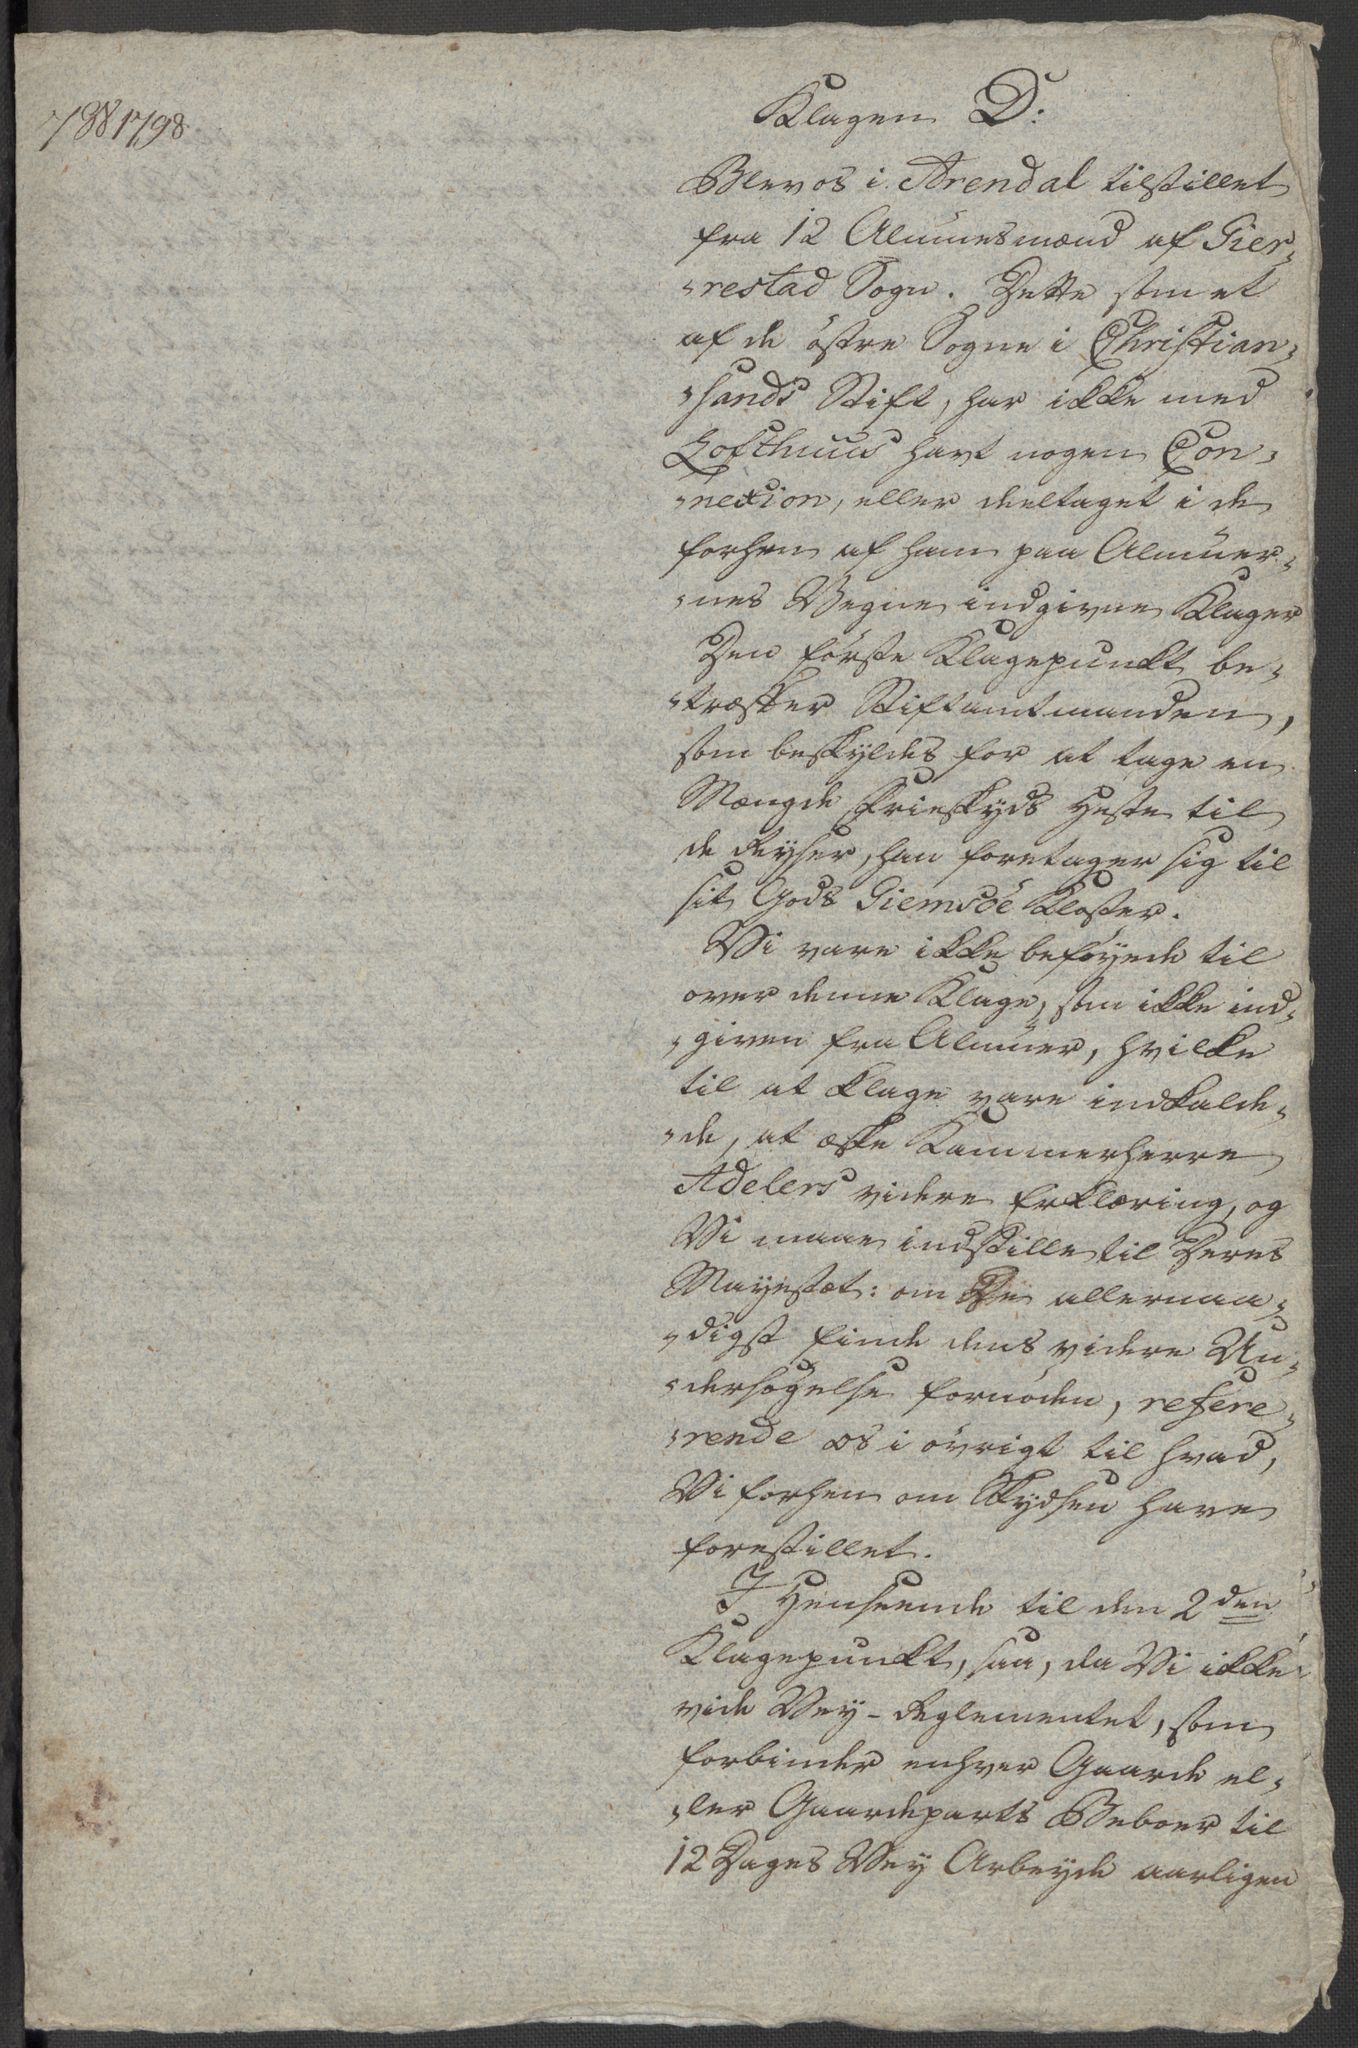 788 1798
Klagen D:
Blev os i Arendal tilstillet
fra 12 Almuesmænd af Gier-
-restad Sogn. Dette som et
af de östre Sogne i Christian-
-sands Stift, har ikke med
Lofthuus havt nogen Con-
-nexion, eller deeltaget i de
forhen af ham paa Almuer-
-nes Vegne indgivne Klager
Den første Klagepunkt be-
-træffer Stiftamtmanden,
som beskyldes for at tage en
Mængde Frieskyds Heste til
de Reyser, han foretager sig til
sit Gods Giemsöe Kloster.
Vi vare ikke beföyede til
over denne Klage, som ikke ind-
-given fra Almuer, hvilke
til at klage vare indkalde-
-de, at æske Kammerherre
Adelers videre Erklæring, og
Vi maae indstille til Deres
Mayestæt: om De allernaa-
-digst finde dens videre Un-
-dersögelse fornöden, refere-
-rende os i övrigt til hvad,
Vi forhen om Skydsen have
forestillet.
I Henseende til den 2den
Klagepunkt, saa, da Vi ikke
vide Vey-Reglementet, som
forbinder enhver Gaards el-
-ler Gaardeparts Beboer til
12 Dages Vey Arbeyde aarligen